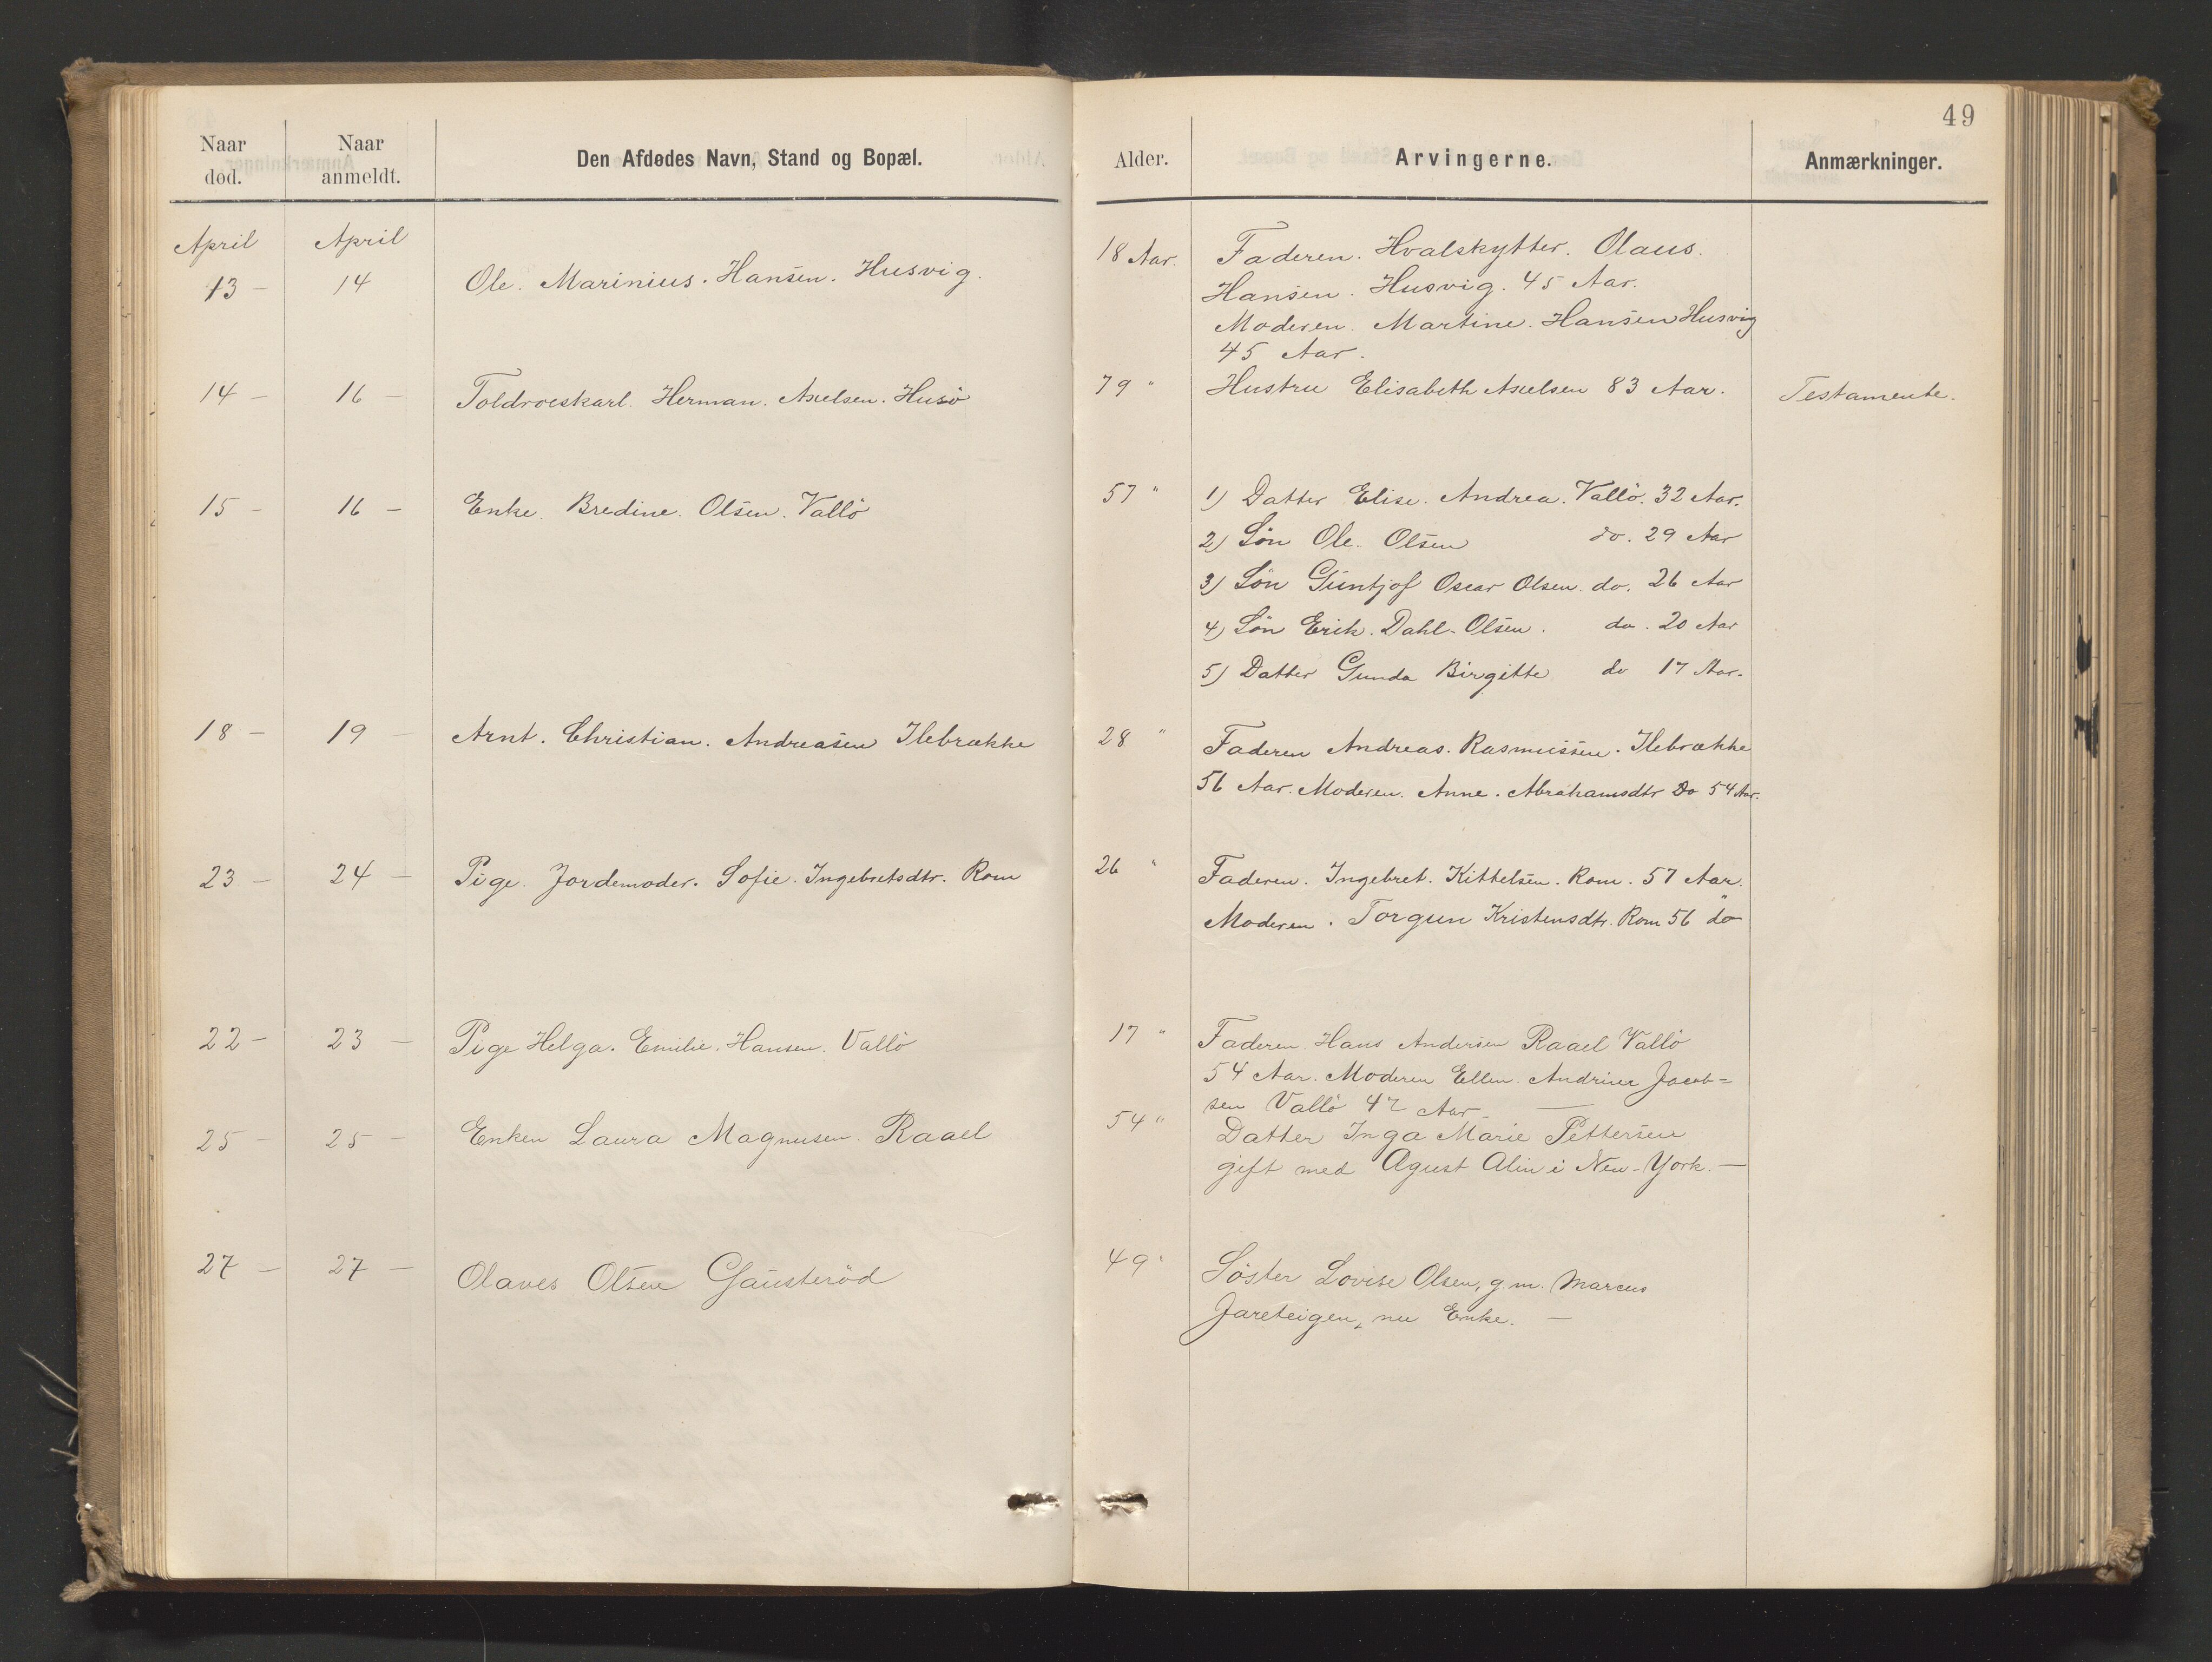 49
Naar død.
Naar anmeldt.
Den Afdødes Navn, Stand og Bopæl.
Alder.
Arvingerne.
Anmærkninger.
April
April
13 –
14
Ole. Marinius. Hansen. Husvig.
18 Aar.
Faderen. Hvalskytter. Olaus.
Hansen. Husvig. 45 Aar.
Moderen. Martine. Hansen Husvig
45 Aar.
14 –
16 –
Toldroeskarl. Herman. Axelsen. Husö
79 "
Hustru Elisabeth Axelsen 83 Aar.
Testamente.
15 –
16 –
Enke. Bredine. Olsen. Vallö
57 "
1) Datter Elise. Andrea. Vallö. 32 Aar.
2) Sön Ole. Olsen do. 29 Aar
3) Sön Guntjof Oscar Olsen. do. 26 Aar
4) Sön Erik. Dahl-Olsen. do. 20 Aar
5) Datter Gunda Birgitte do 17 Aar.
18 –
19 –
Arnt. Christian. Andreasen Ilebrække
28 "
Faderen Andreas. Rasmussen. Ilebrække
56 Aar. Moderen. Anne. Abrahamsdtr Do 54 Aar.
23 –
24 –
Pige. Jordemoder. Sofie. Ingebretsdtr. Rom
26 "
Faderen. Ingebret. Kittelsen. Rom. 57 Aar.
Moderen. Torgun Kristensdtr. Rom 56 do
22 –
23 –
Pige Helga. Emilie. Hansen. Vallö
17 "
Faderen. Hans Andersen Raael Vallö
54 Aar. Moderen Ellen. Andrine Jacob=
sen Vallö 42 Aar –
25 –
25 –
Enken Laura Magnusen. Raael
54 "
Datter Inga Marie Pettersen
gift med Agust Alin i New-York. –
27 –
27 –
Olaves Olsen Gausteröd
49 "
Söster Lovise Olsen, g.m. Marcus
Jareteigen, nu Enke. –